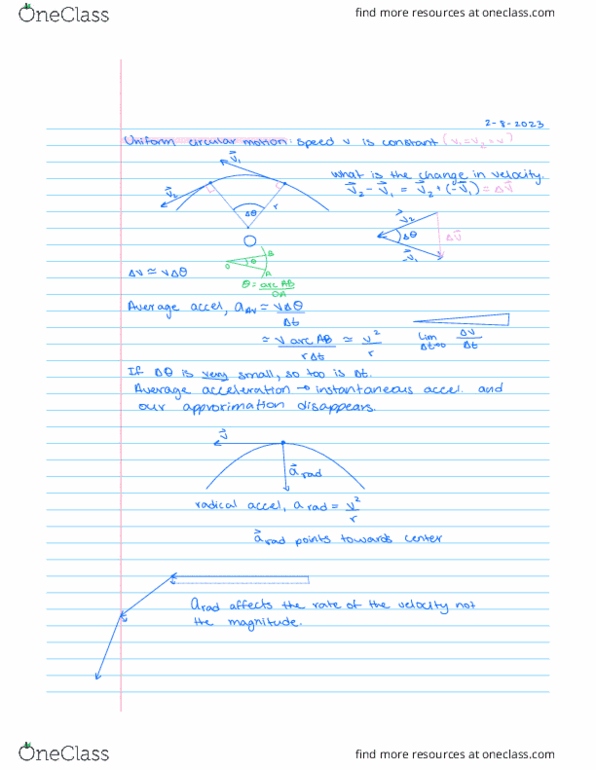 OneClass
find more resources at oneclass.com
2-8-2023
Uniform circular motion: speed v is constant (v₁=v₂=v)
what is the change in velocity.
v⃗₂ - v⃗₁ = v⃗₂ + (-v⃗₁) = Δv⃗
v⃗₁
v⃗₂
Δθ
r
v⃗₂
Δθ
Δv⃗
-v⃗₁
O
θ
B
A
θ = arc AB / OA
Δv ≃ vΔθ
Average accel, a_AV ≃ vΔθ / Δt
≃ v arc AB / rΔt ≃ v² / r
lim Δt→0 Δv / Δt
If Δθ is very small, so too is Δt.
Average acceleration → instantaneous accel. and
our approximation disappears.
v⃗
a⃗ rad
radical accel, a rad = v² / r
a⃗ rad points towards center
a rad affects the rate of the velocity not
the magnitude.
OneClass
find more resources at oneclass.com